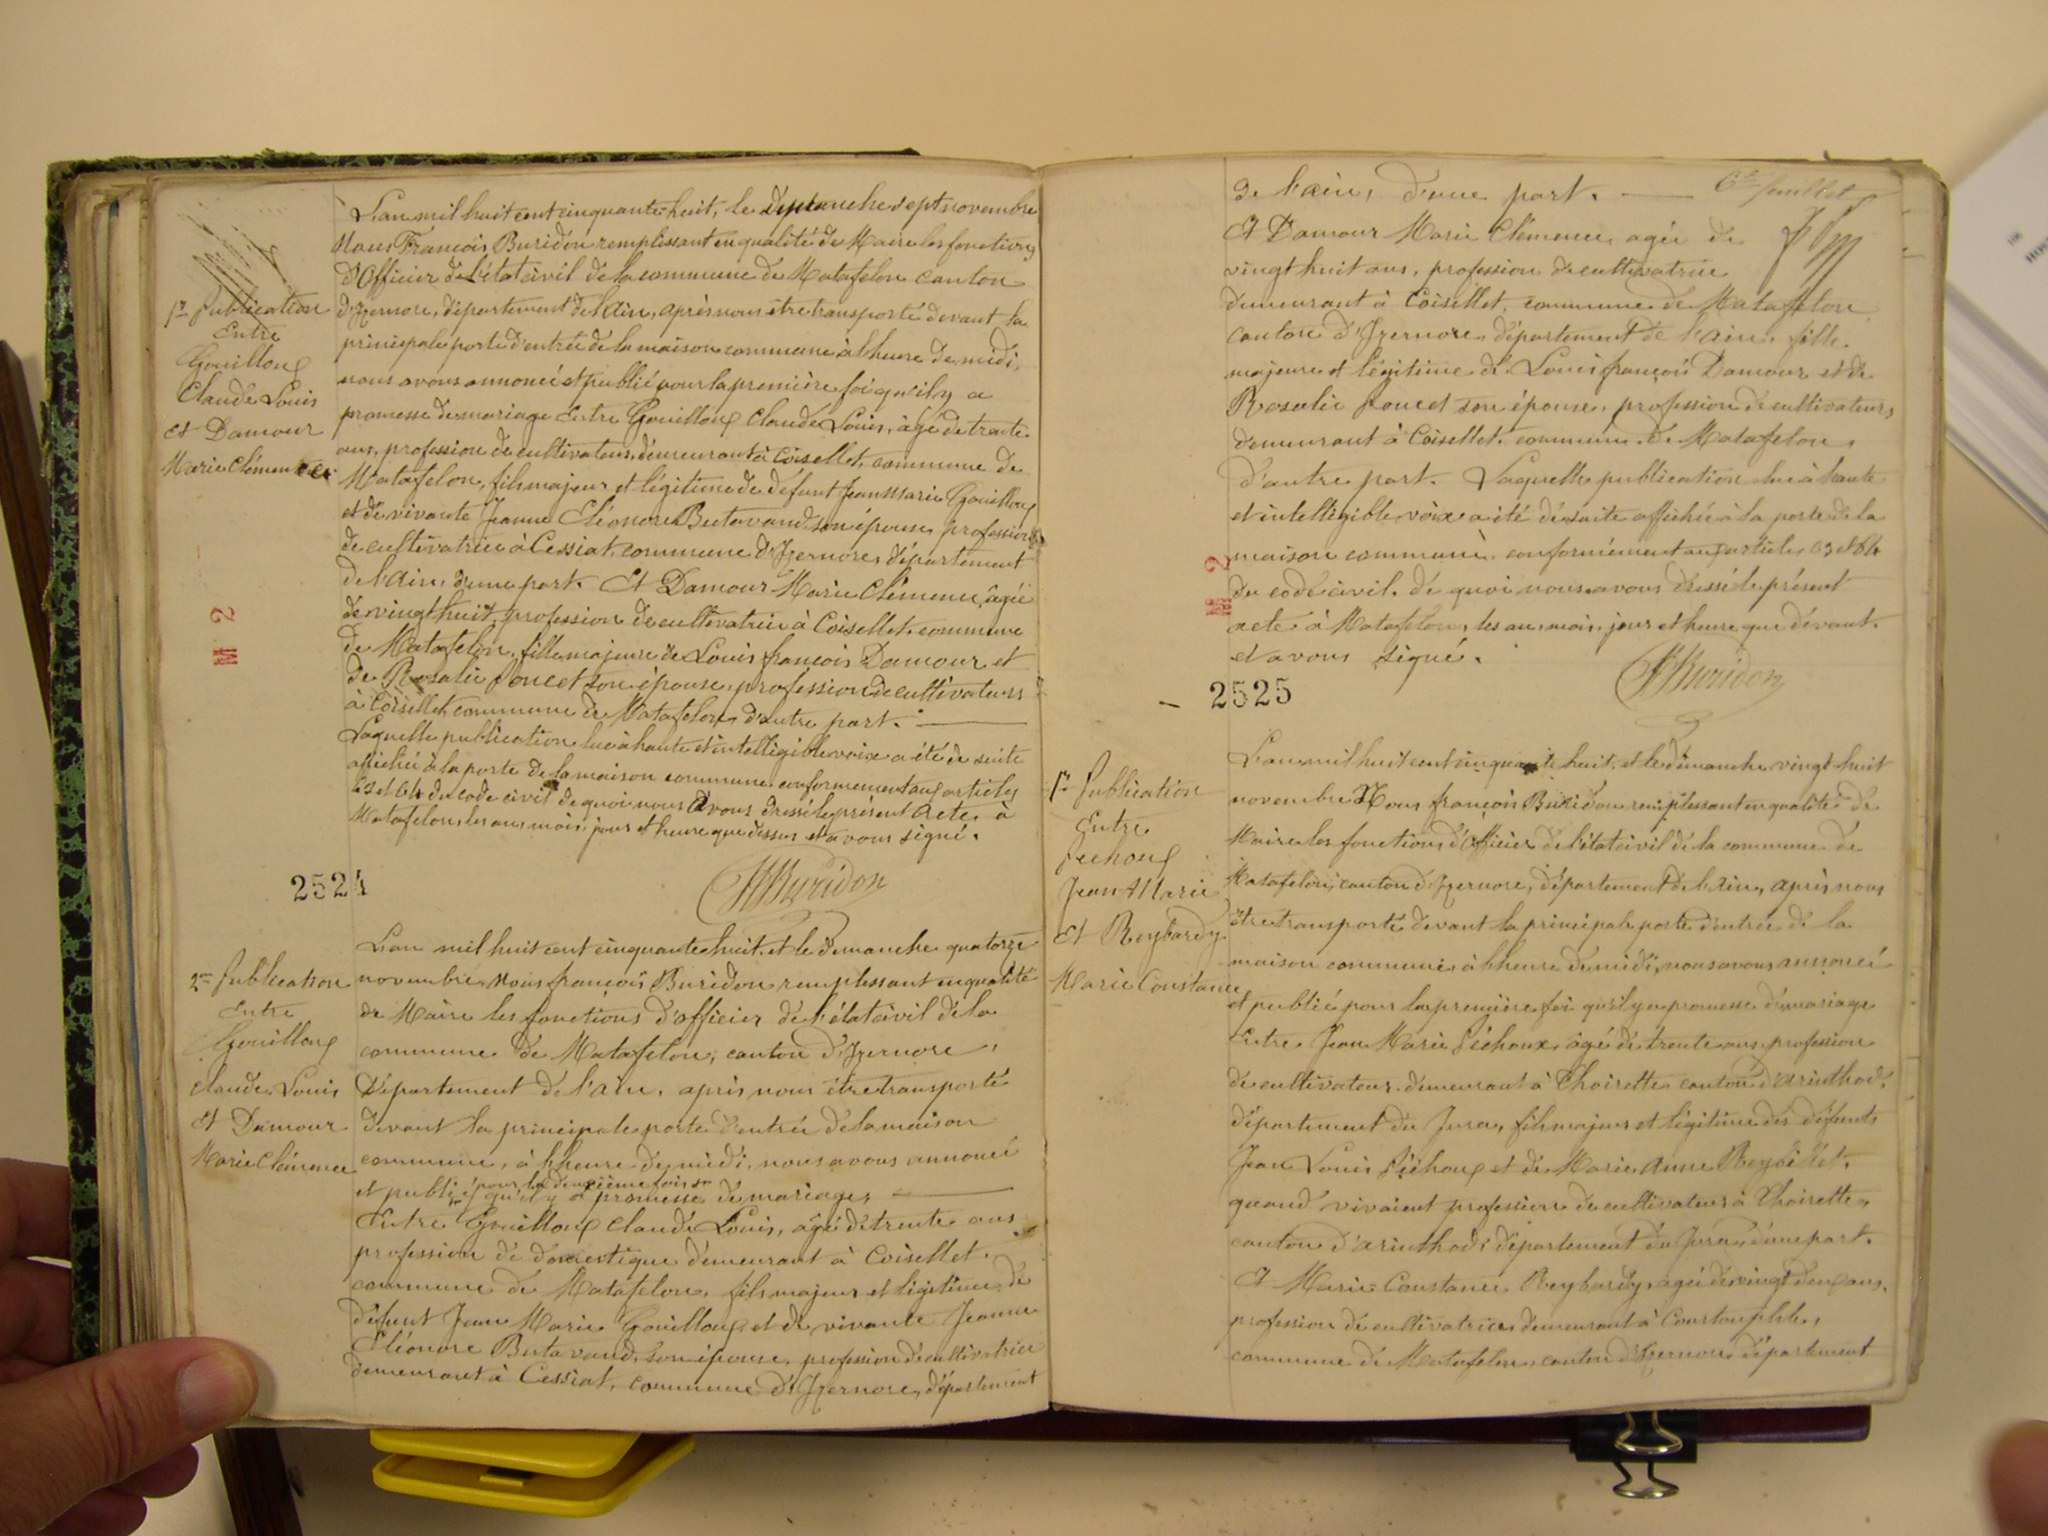 L'an mil huit cent cinquante huit, le dimanche sept novembre
Nous François Buridon remplissant en qualité de Maire les fonctions
d'Officier de l'état civil de la commune de Matafelon canton
d'Izernore, département de l'ain, après nous être transporté devant la
principale porte d'entrée de la maison commune à l'heure de midi,
nous avons annoncé et publié pour la première foi qu'il y a
promesse de mariage entre Gouilloux Claude Louis, âgé de trente
ans, profession de cultivateur, demeurant à Coisellet, commune de
Matafelon, fils majeur et légitime de defunt Jean Marie Gouilloux
et de vivante Jeanne Eléonore Butavand son épouse, profession
de cultivatrice à Cessiat, commune d'Izernore, département
de l'ain, d'une part. Et Damour Marie Clémence, âgée
de vingt huit, profession de cultivatrice à Coisellet, commune
de Matafelon, fille majeure de Louis françois Damour et
de Rosalie Poncet son épouse, profession de cultivateurs
à Coisellet, commune de Matafelon, d'autre part.
Laquelle publication lue à haute et intelligible voix a été de suite
affichée à la porte de la maison commune conformement aux articles
63 et 64 du code civil de quoi nous avons dressé le présent acte, à
Matafelon, les an, mois, jour et heure que dessus et avons signé.
1re Publication
Entre
Gouilloux
Claude Louis
et Damour
Marie Clémence
M 2
Buridon
2524
L'an mil huit cent cinquante huit, et le dimanche quatorze
novembre, nous françois Buridon remplissant en qualité
de Maire les fonctions d'officier de l'état civil de la
commune de Matafelon, canton d'Izernore,
département de l'ain, après nous être transporté
devant la principale porte d'entrée de la maison
commune, à l'heure de midi, nous avons annoncé
pour la deuxième fois
et publié qu'il y a promesse de mariage,
Entre Gouilloux Claude Louis, âgé de trente ans
profession de domestique demeurant à Coisellet,
commune de Matafelon, fils majeur et légitime de
défunt Jean Marie Gouilloux et de vivante Jeanne
Eléonore Butavand, son épouse, profession de cultivatrice
demeurant à Cessiat, commune d'Izernore, département
2me Publication
Entre
Gouilloux
Claude Louis
et Damour
Marie Clémence
6e feuillet
de l'ain, d'une part.
Et Damour Marie Clémence, agée de
vingt huit ans, profession de cultivatrice
demeurant à Coisellet, commune de Matafelon
canton d'Izernore, département de l'ain, fille
majeure et légitime de Louis françois Damour et de
Rosalie Poncet son épouse, profession de cultivateurs,
demeurant à Coisellet, commune de Matafelon,
d'autre part. Laquelle publication lue à haute
et intelligible voix a été de suite affichée à la porte de la
maison commune, conformément aux articles 63 et 64
du code civil, de quoi nous avons dressé le présent
acte à Matafelon, les an, mois, jour et heure que dévant,
et avons signé.
M 2
Buridon
2525
L'an mil huit cent cinquante huit, et le dimanche vingt huit
novembre Nous françois Buridon remplissant en qualité de
Maire les fonctions d'officier de l'état civil de la commune de
Matafelon, canton d'Izernore, département de l'ain, après nous
être transporté devant la principale porte d'entrée de la
maison commune, à l'heure de midi, nous avons annoncé
et publié pour la première foi qu'il y a promesse de mariage
Entre Jean Marie Péchoux, âgé de trente ans, profession
de cultivateur, demeurant à Thoirette canton d'arinthod,
département du Jura, fils majeur et légitime des défunts
Jean Louis Péchoux et de Marie Anne Reybillet,
quand vivaient profession de cultivateurs à Thoirette,
canton d'arinthod, département du Jura, d'une part.
Et Marie Constance Reybardy, agée de vingt deux ans,
profession de cultivatrice, demeurant à Courtouphle,
commune de Matafelon, canton d'Izernore, département
1re Publication
Entre
Péchoux
Jean Marie
Et Reybardy
Marie Constance